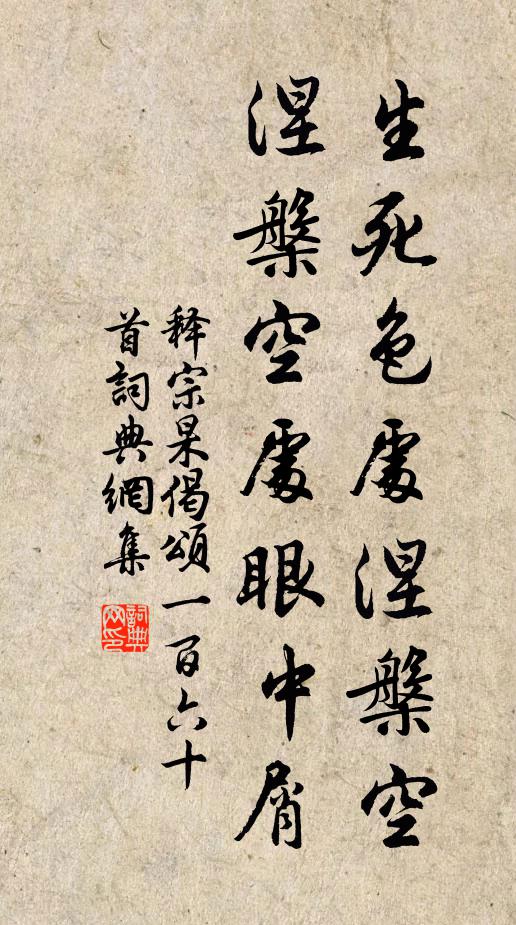 生死色處涅槃空
涅槃空處眼中屑
釋宗杲偈頌一百六十
首詞典網集
詞典網印